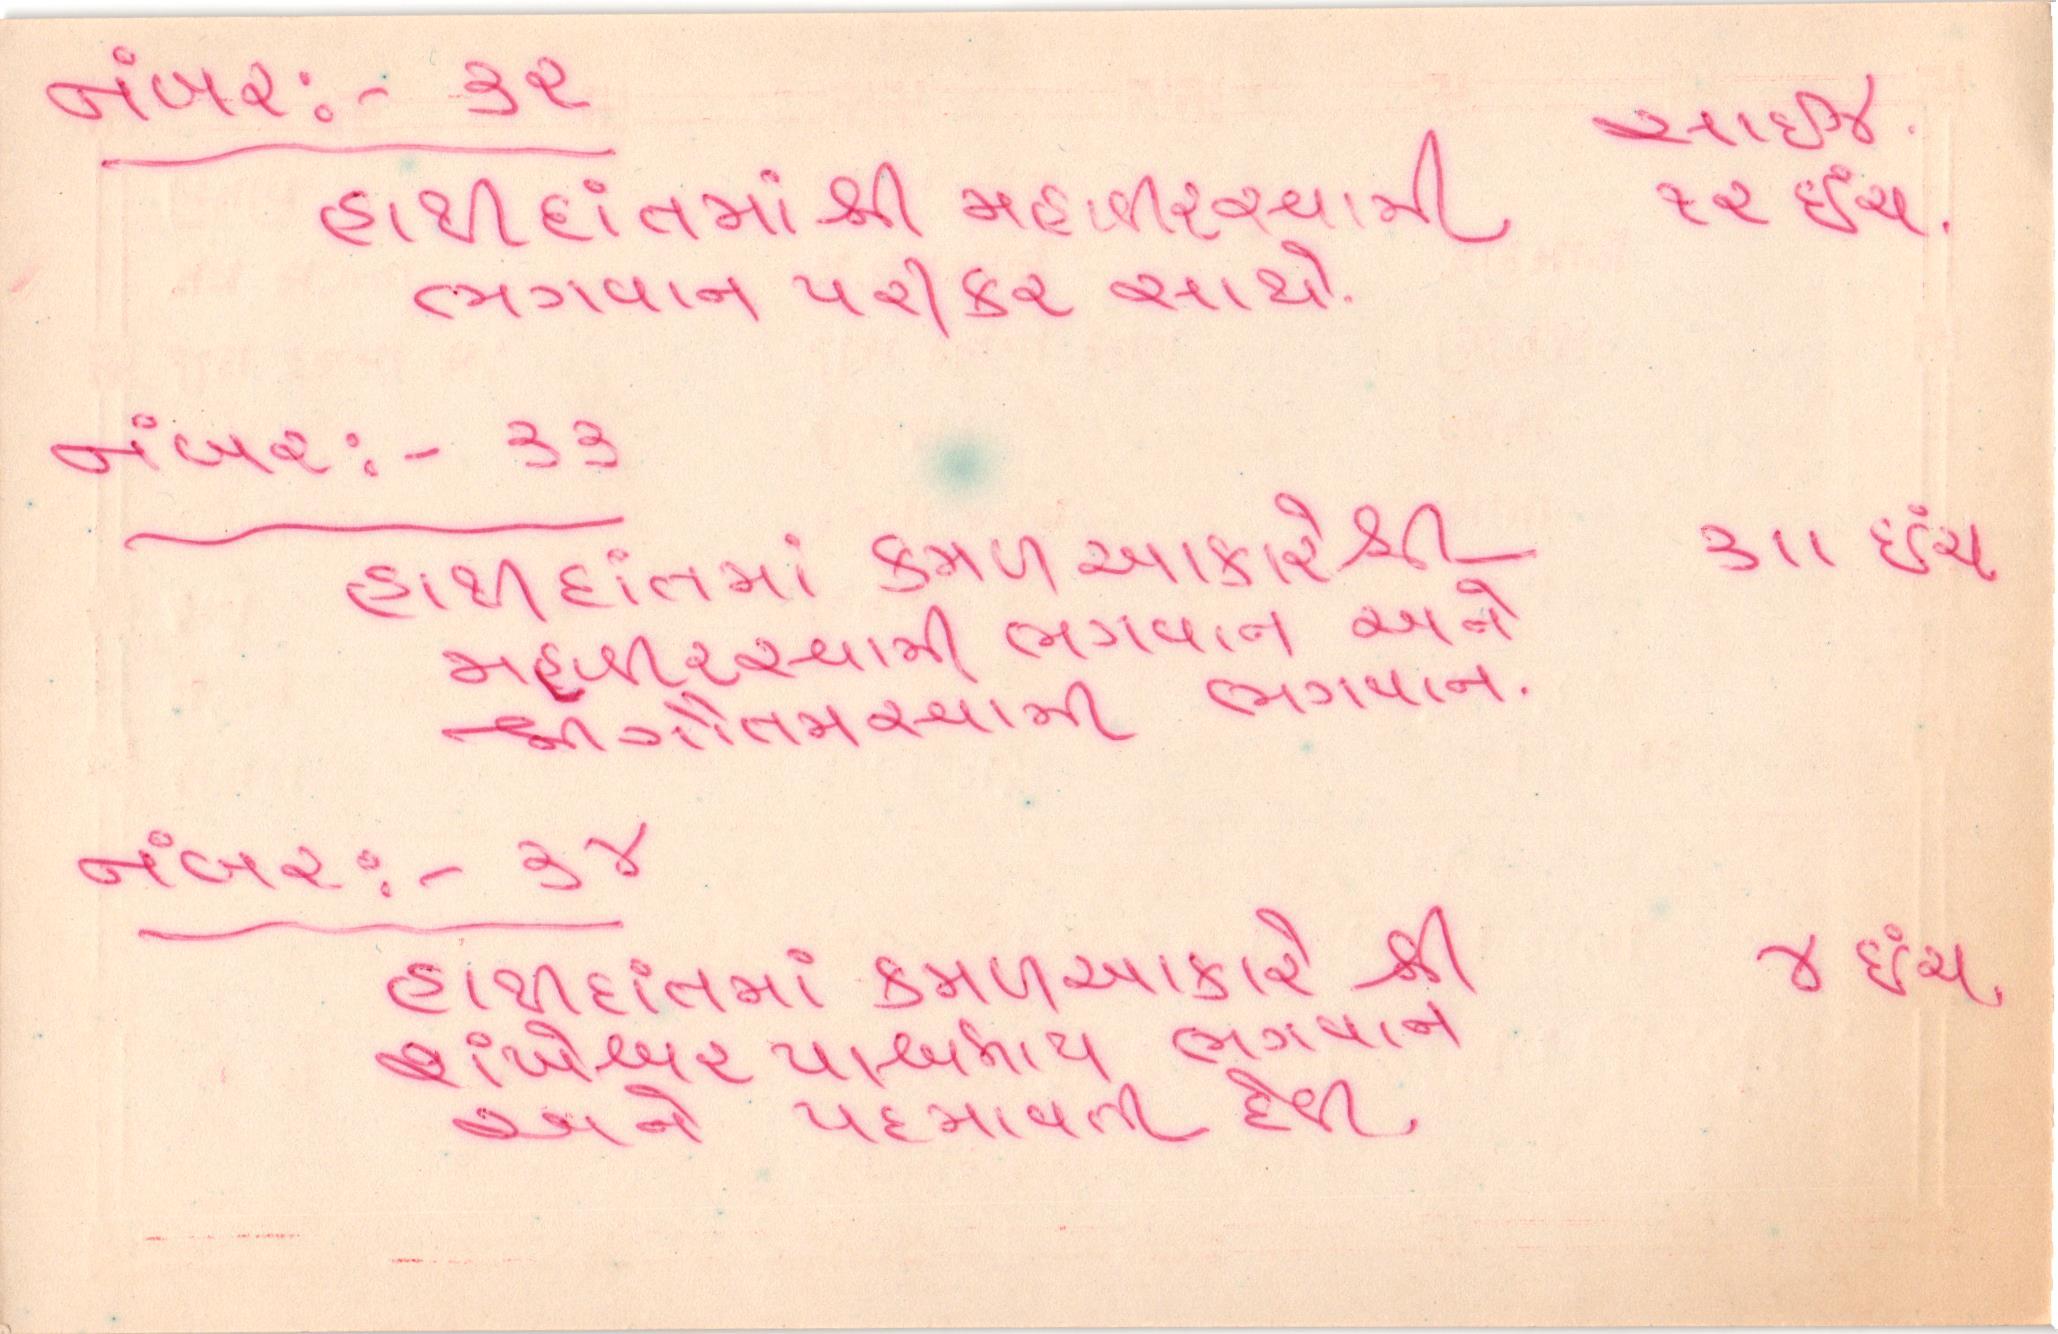 નંબર:- ૩૨
સાઈઝ.
હાથીદાંતમાં શ્રી મહાવીરસ્વામી ૧૨ ઈંચ.
ભગવાન પરીકર સાથે.
નંબર:- ૩૩
હાથીદાંતમાં કમળ આકારે શ્રી ૩ાા ઈંચ
મહાવીરસ્વામી ભગવાન અને
શ્રી ગૌતમસ્વામી ભગવાન.
નંબર:- ૩૪
હાથીદાંતમાં કમળઆકારે શ્રી ૪ ઈંચ.
શંખેશ્વર પાર્શ્વનાથ ભગવાન
અને પદમાવતી દેવી.